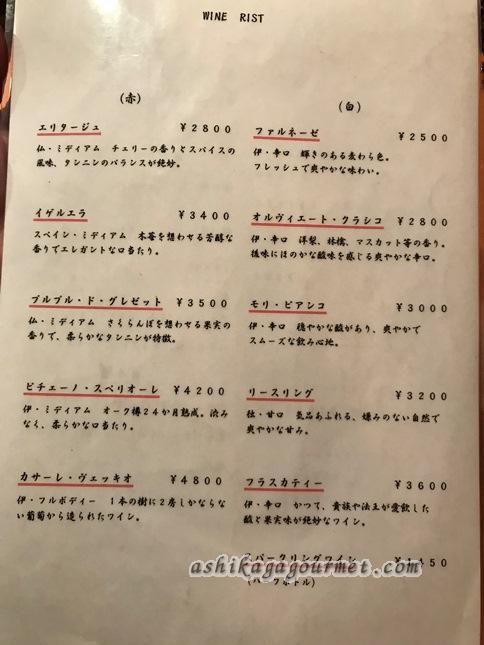 WINE RIST
(赤)
エリタージュ ¥2800
仏・ミディアム チェリーの香りとスパイスの
風味、タンニンのバランスが絶妙。
イゲルエラ ¥3400
スペイン・ミディアム 木苺を想わせる芳醇な
香りでエレガントな口当たり。
プルプル・ド・グレゼット ¥3500
仏・ミディアム さくらんぼを想わせる果実の
香りで、柔らかなタンニンが特徴。
ピチェーノ・スペリオーレ ¥4200
伊・ミディアム オーク樽24か月熟成。渋み
なく、柔らかな口当たり。
カサーレ・ヴェッキオ ¥4800
伊・フルボディー 1本の樹に2房しかならな
い葡萄から造られたワイン。
(白)
ファルネーゼ ¥2500
伊・辛口 輝きのある麦わら色。
フレッシュで爽やかな味わい。
オルヴィエート・クラシコ ¥2800
伊・辛口 洋梨、林檎、マスカット等の香り。
後味にほのかな酸味を感じる爽やかな辛口。
モリ・ビアンコ ¥3000
伊・辛口 穏やかな酸があり、爽やかで
スムーズな飲み心地。
リースリング ¥3200
独・甘口 気品あふれる、嫌みのない自然で
爽やかな甘み。
フラスカティー ¥3600
伊・辛口 かつて、貴族や法王が愛飲した
酸と果実味が絶妙なワイン。
スパークリングワイン
(ハーフボトル)
ashikagagourmet.com